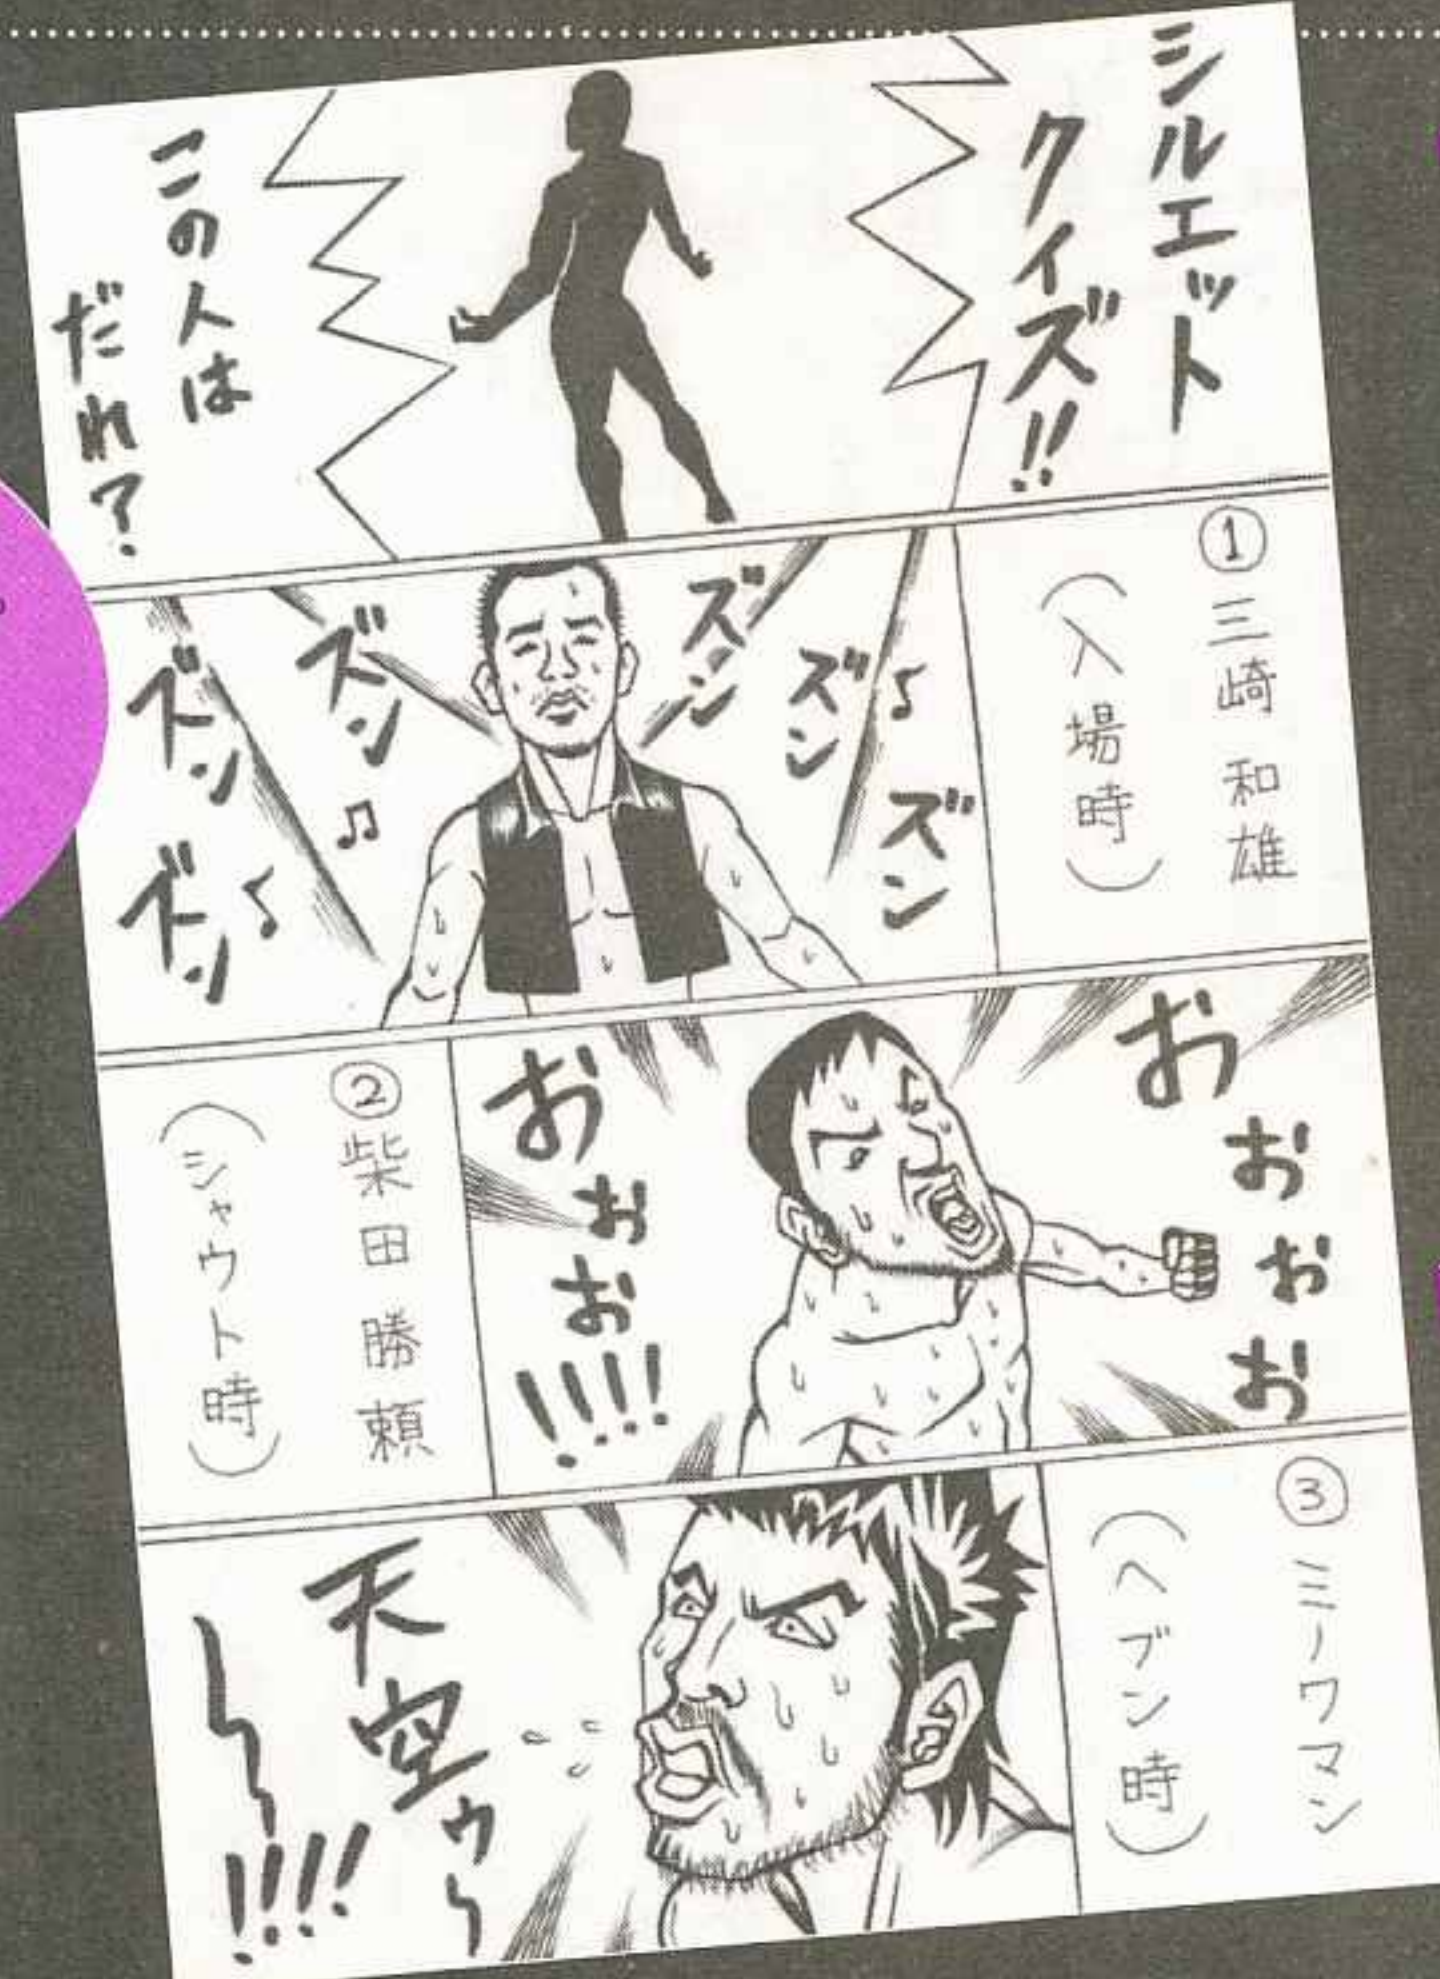 シルエット
クイズ!!
この人は
だれ?
①三崎和雄
(入場時)
ズン
ズン♪
ズン
ズン♫
ズン
ズン♪
おおおお
おおお!!!!
②柴田勝頼
(シャウト時)
③ミノワマン
(ヘブン時)
天空ゥ〜
〜!!!!